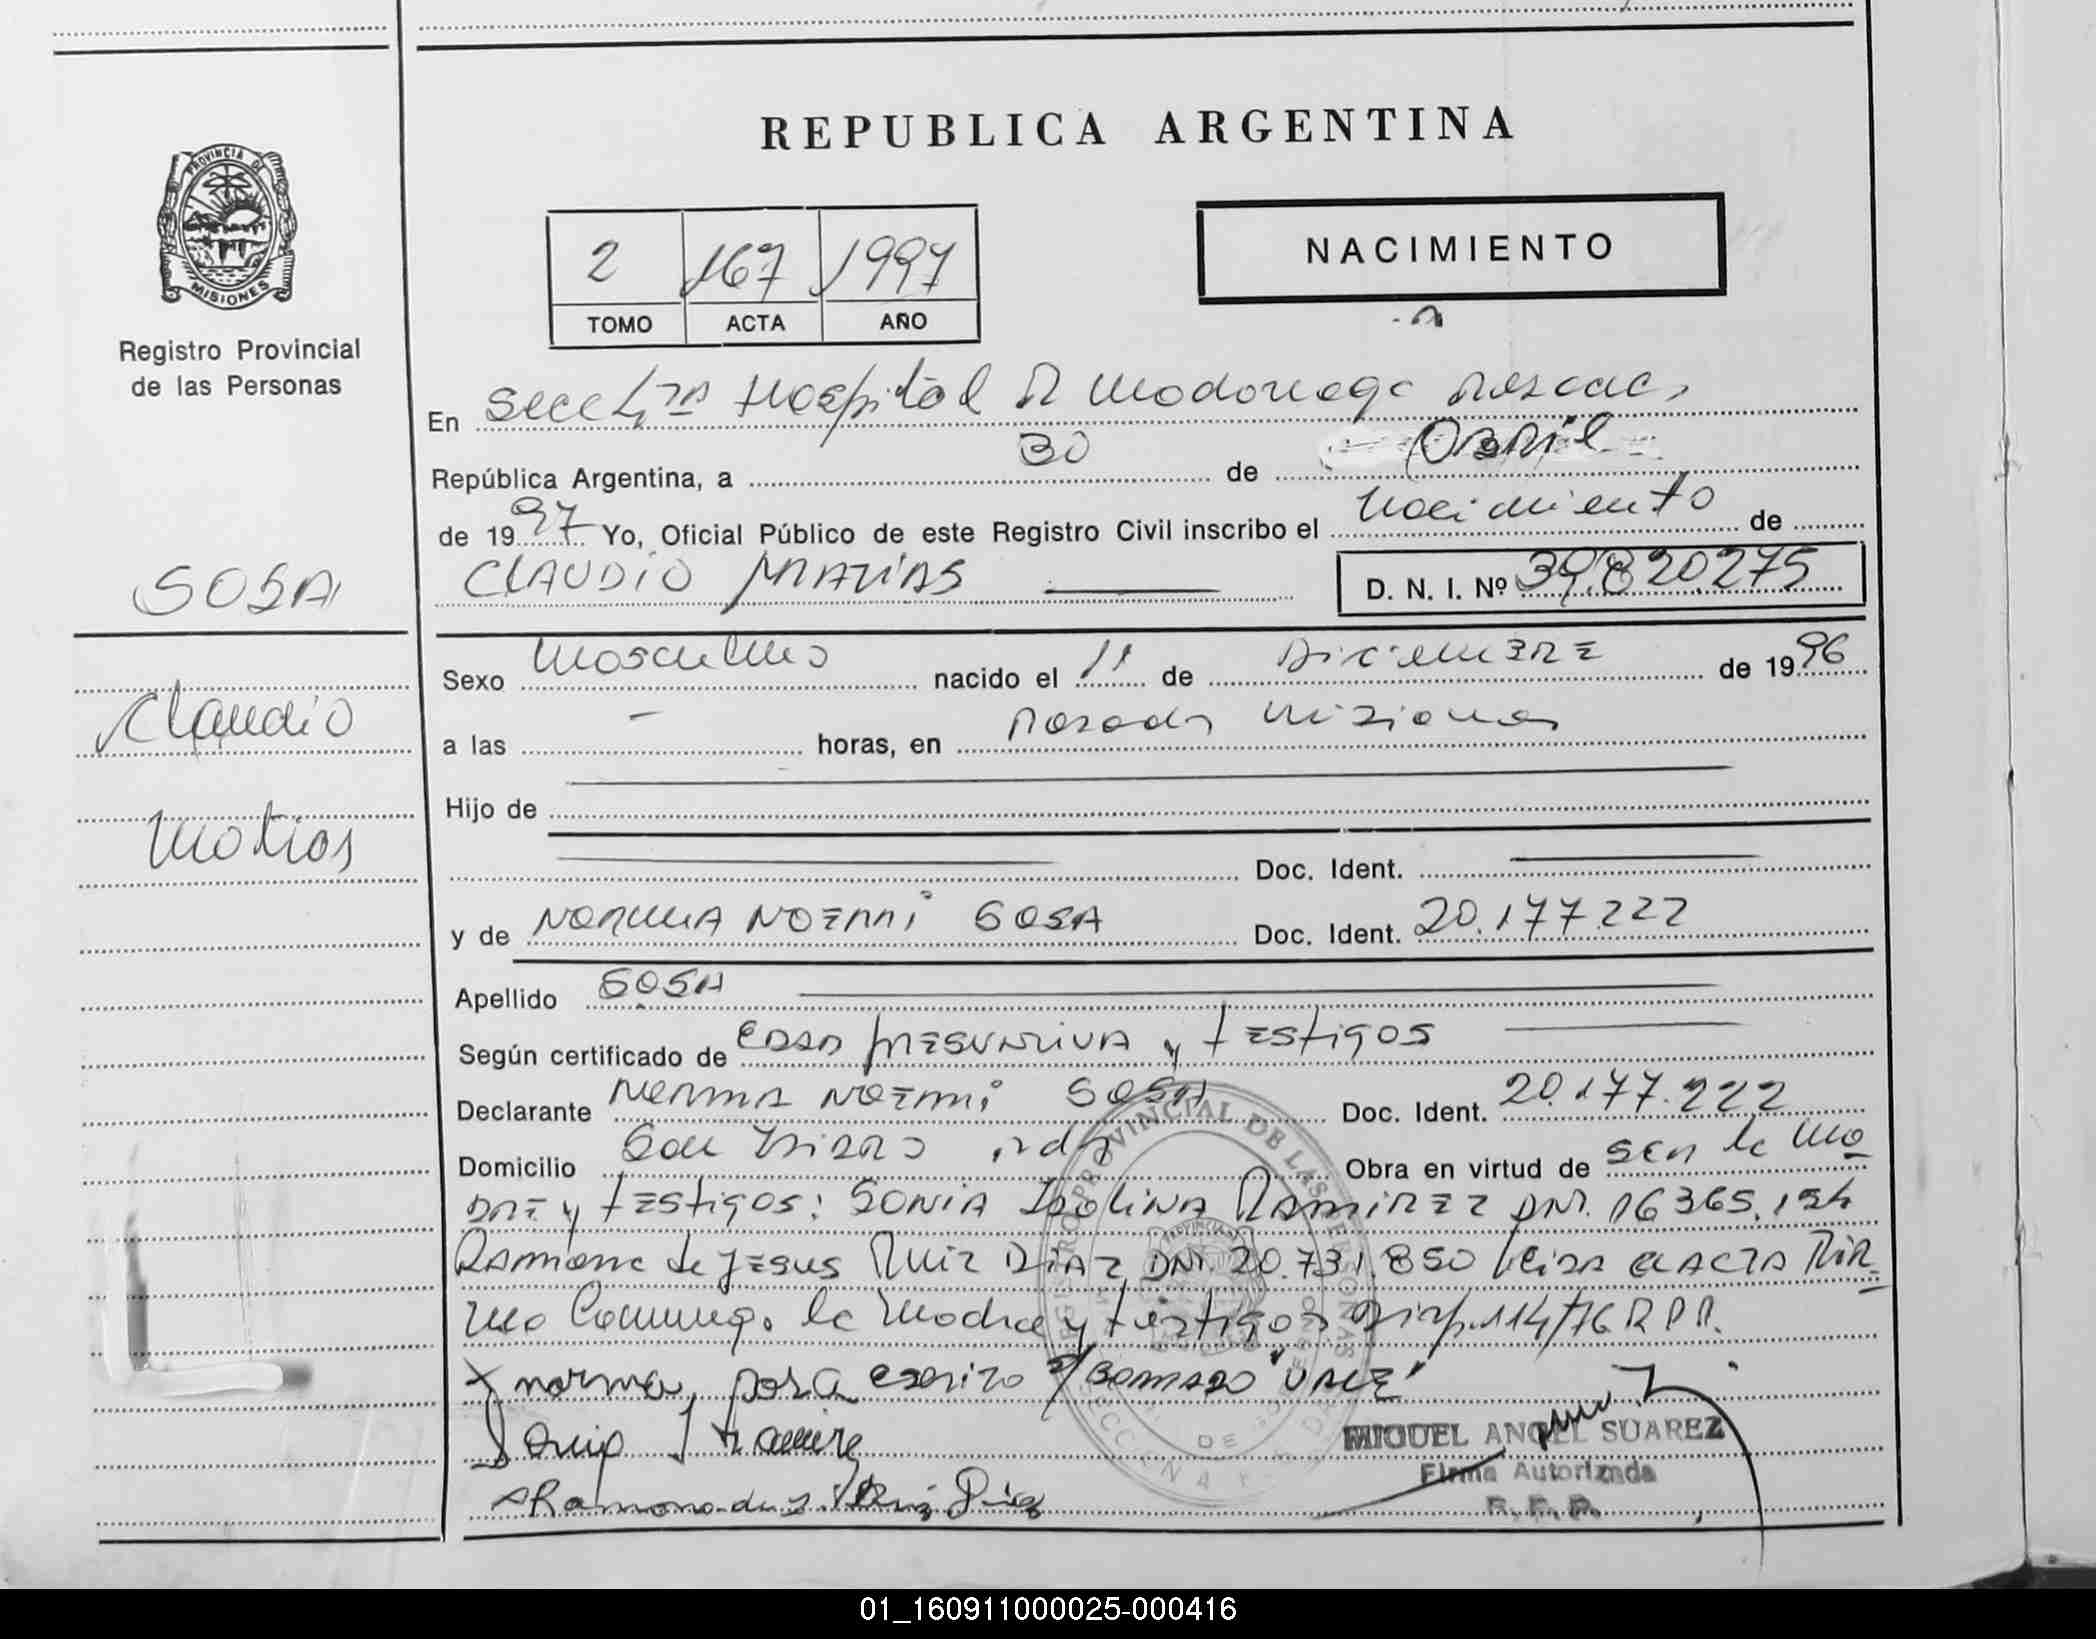 REPUBLICA ARGENTINA
PROVINCIA DE
MISIONES
Registro Provincial
de las Personas
2 167 1997
TOMO ACTA AÑO
NACIMIENTO
En Secc Hospital R Madariaga Posadas
República Argentina, a 30 de Abril
de 1997 Yo, Oficial Público de este Registro Civil inscribo el nacimiento de
CLAUDIO MATIAS D. N. I. Nº 39.820.275
SOSA
Claudio
Matias
Sexo Masculino nacido el 11 de Diciembre de 1996
a las - horas, en Posadas Misiones
Hijo de
Doc. Ident.
y de NORMA NOEMI SOSA Doc. Ident. 20.177.222
Apellido SOSA
Según certificado de y testigos
Declarante NORMA NOEMI SOSA Doc. Ident. 20.177.222
Domicilio San Isidro Obra en virtud de ser la ma
dre y testigos: SONIA Isolina RAMIREZ DNI. 16 365.
Ramona de JESUS Ruiz DIAZ DNI. 20.731.850 el ACTA FIR
la Madre y testigos Disp. 114/76 R P P.
norma, sosa escrito s/ borrado "VALE"
Sonia I Ramirez
Ramona de J. Ruiz Diaz
REGISTRO PROVINCIAL DE LAS PERSONAS
MIGUEL ANGEL SUAREZ
Firma Autorizada
R. P. P.
01_160911000025-000416